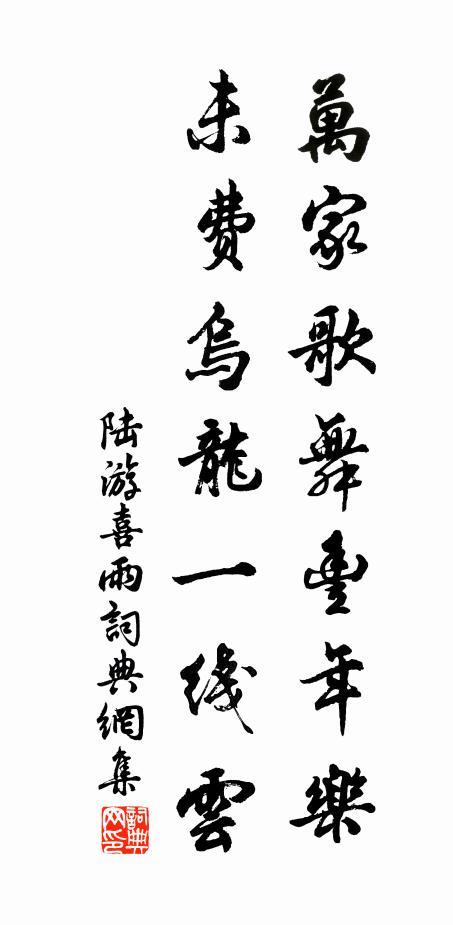 萬家歌舞豐年樂
未費烏龍一綫雲
陸游喜雨詞典網集
詞典网印